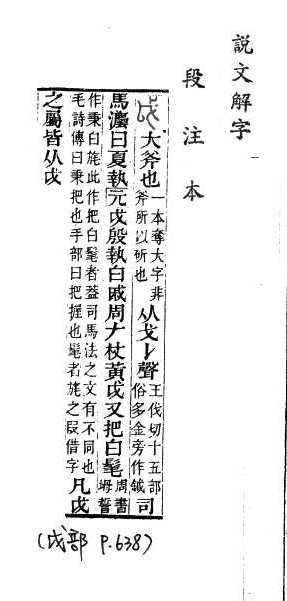 說文解字
段注本
戉 大斧也 一本奪大字非斧所以斫也 从戈𠄌聲 王伐切十五部俗多金旁作鉞 司
馬灋曰夏執元戉殷執白戚周𠂇杖黃戉又把白髦 周書坶誓
作秉白旄此作把白髦者葢司馬法之文有不同也毛詩傳曰秉把也手部曰把握也髦者旄之叚借字 凡戉
之屬皆从戉
(戉部 P.638)